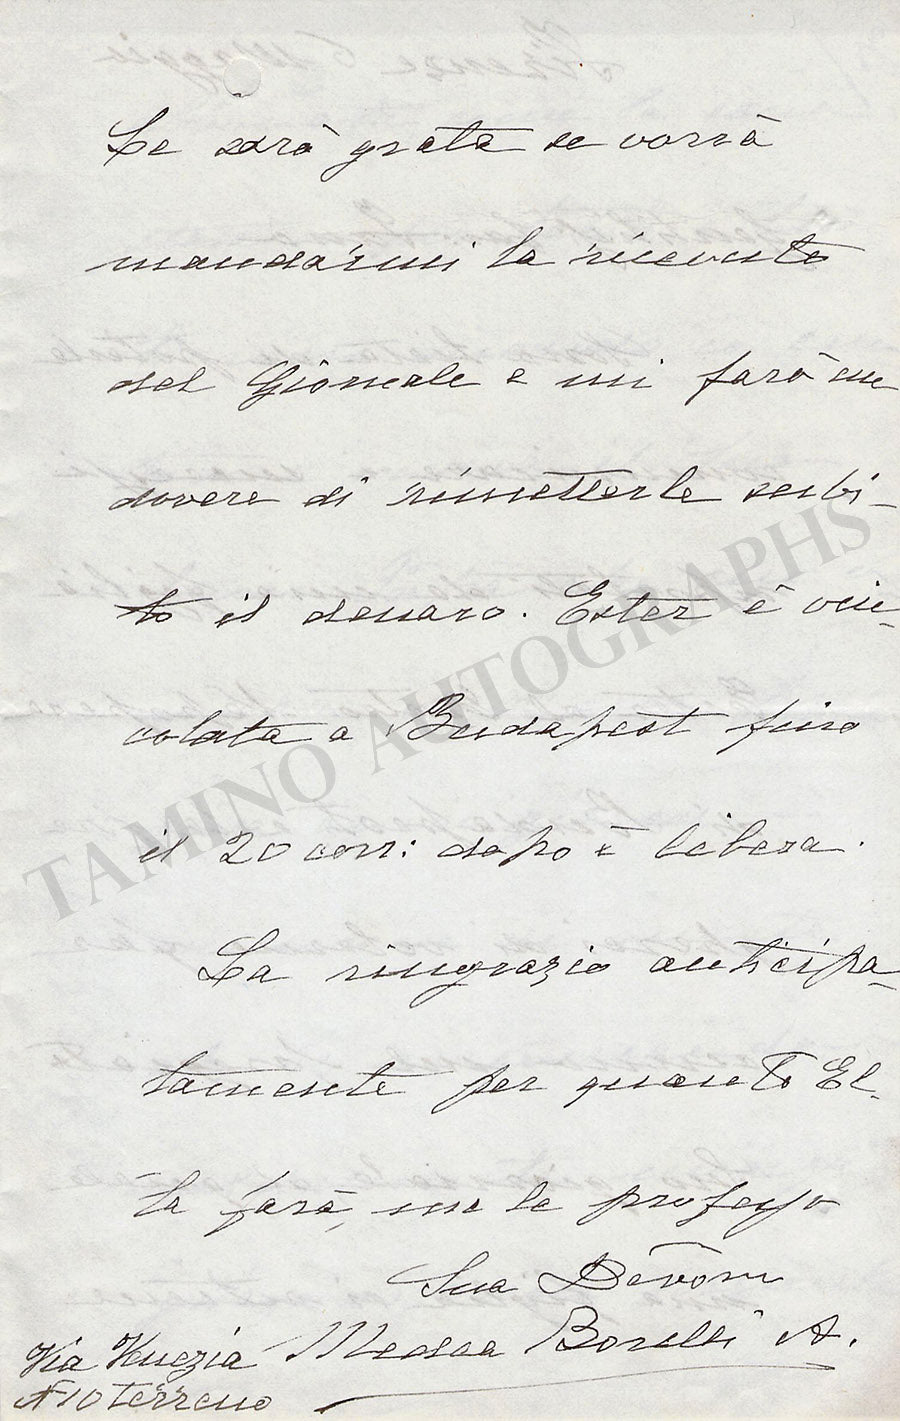 Le sarò grata se vorrà
mandarmi la ricevuta
del Giornale e mi farò un
dovere di rimetterle subi-
to il denaro. Ester è vin-
colata a Budapest fino
il 20 corr: dopo è libera.
La ringrazio anticipa-
tamente per quanto El-
la farà, me le professo
Sua Devoma
Medea Borelli A.
Via Venezia
N 10 terreno
TAMINO AUTOGRAPHS